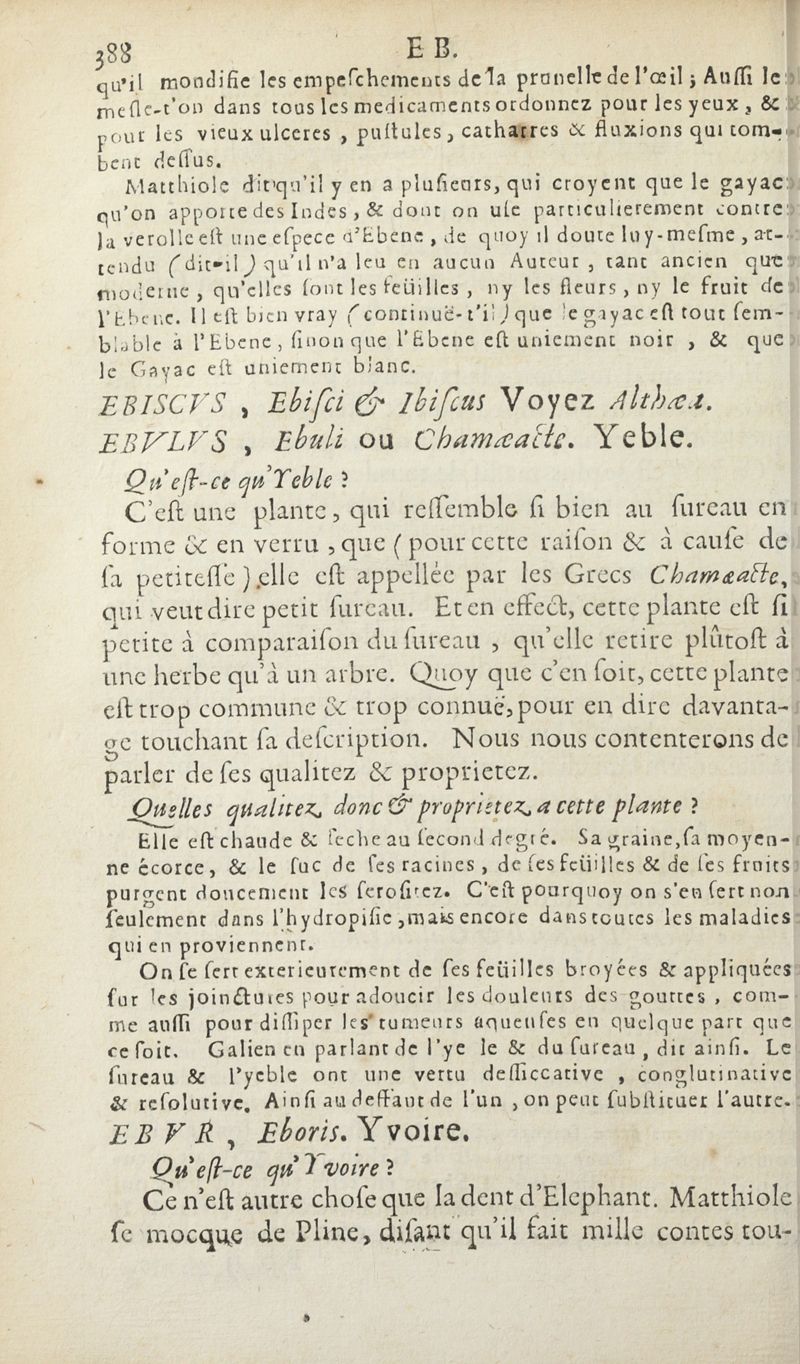 388 EB.
qu'il mondifie les empeſchements de la prunelle de l'œil ; Auſſi le
meſle-t'on dans tous les medicaments ordonnez pour les yeux, &
pour les vieux ulceres , puſtules, catharres & fluxions qui tom-
bent deſſus.
Matthiole dit qu'il y en a pluſieurs, qui croyent que le gayac
qu'on apporte des Indes, & dont on uſe particulierement contre
la verolle eſt une eſpece d'Ebene , de quoy il doute luy-meſme , at-
tendu (dit-il) qu'il n'a leu en aucun Auteur , tant ancien que
moderne , qu'elles ſont les feüilles , ny les fleurs, ny le fruit de
l'Ebene. Il eſt bien vray (continuë-t'il) que le gayac eſt tout ſem-
blable à l'Ebene, ſinon que l'Ebene eſt uniement noir , & que
le Gayac eſt uniement blanc.
EBISCVS , Ebiſci & Ibiſcus Voyez Althæa.
EBVLVS , Ebuli ou Chamæacte. Yeble.
Qu'eſt-ce qu'Yeble ?
C'eſt une plante, qui reſſemble ſi bien au ſureau en
forme & en vertu , que ( pour cette raiſon & à cauſe de
ſa petiteſſe ) elle eſt appellée par les Grecs Chamæacte,
qui veut dire petit ſureau. Et en effect, cette plante eſt ſi
petite à comparaiſon du ſureau , qu'elle retire plûtoſt à
une herbe qu'à un arbre. Quoy que c'en ſoit, cette plante
eſt trop commune & trop connuë, pour en dire davanta-
ge touchant ſa deſcription. Nous nous contenterons de
parler de ſes qualitez & proprietez.
Quelles qualitez donc & proprietez a cette plante ?
Elle eſt chaude & ſeche au ſecond degré. Sa graine, ſa moyen-
ne écorce, & le ſuc de ſes racines, de ſes feüilles & de ſes fruits
purgent doucement les ſeroſitez. C'eſt pourquoy on s'en ſert non
ſeulement dans l'hydropiſie, mais encore dans toutes les maladies
qui en proviennent.
On ſe ſert exterieurement de ſes feüilles broyées & appliquées
ſur les joinctures pour adoucir les douleurs des gouttes , com-
me auſſi pour diſſiper les tumeurs aqueuſes en quelque part que
ce ſoit. Galien en parlant de l'ye le & du ſureau , dit ainſi. Le
ſureau & l'yeble ont une vertu deſſiccative , conglutinative
& reſolutive. Ainſi au deffaut de l'un , on peut ſubſtituer l'autre.
EBVR , Eboris. Yvoire.
Qu'eſt-ce qu'Yvoire ?
Ce n'eſt autre choſe que la dent d'Elephant. Matthiole
ſe mocque de Pline, diſant qu'il fait mille contes tou-